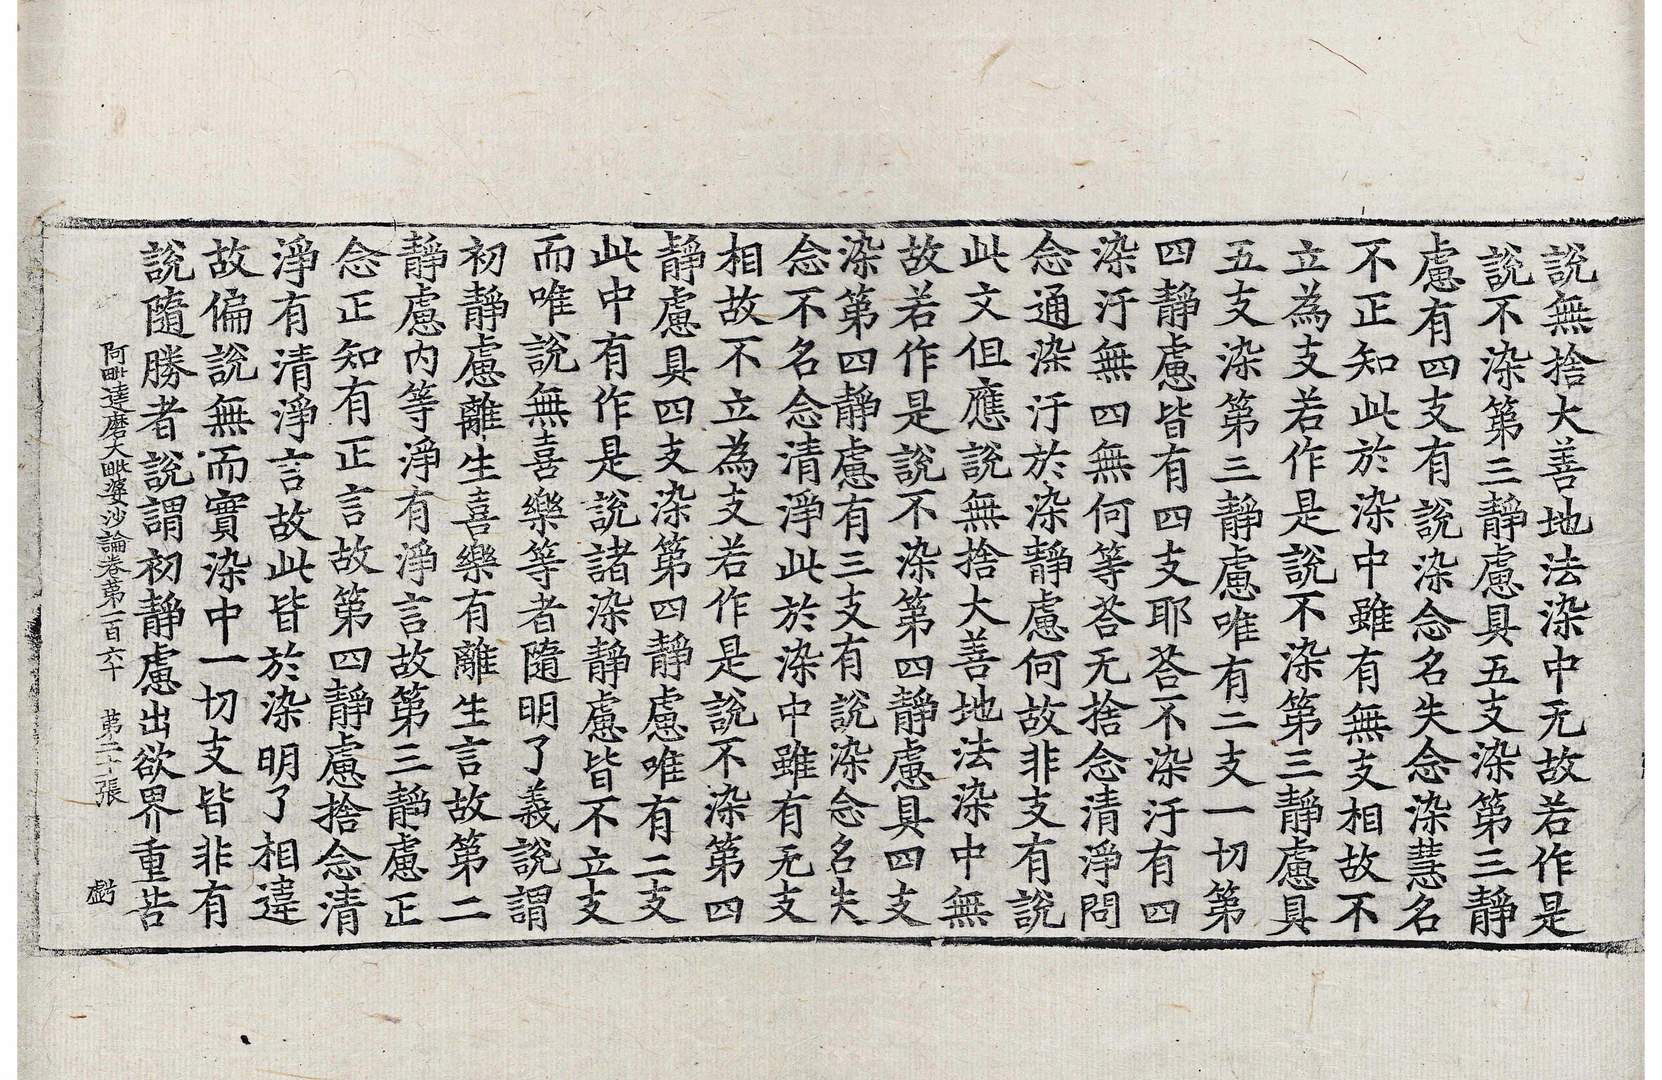 說無捨大善地法染中无故若作是
說不染第三靜慮具五支染第三靜
慮有四支有說染念名失念染慧名
不正知此於染中雖有無支相故不
立為支若作是說不染第三靜慮具
五支染第三靜慮唯有二支一切第
四靜慮皆有四支耶荅不染汙有四
染汙無四無何等荅无捨念清淨問
念通染汙於染靜慮何故非支有說
此文但應說無捨大善地法染中無
故若作是說不染第四靜慮具四支
染第四靜慮有三支有說染念名失
念不名念清淨此於染中雖有无支
相故不立為支若作是說不染第四
靜慮具四支染第四靜慮唯有二支
此中有作是說諸染靜慮皆不立支
而唯說無喜樂等者隨明了義說謂
初靜慮離生喜樂有離生言故第二
靜慮內等淨有淨言故第三靜慮正
念正知有正言故第四靜慮捨念清
淨有清淨言故此皆於染明了相違
故偏說無而實染中一切支皆非有
說隨勝者說謂初靜慮出欲界重苦
阿毗達磨大毗婆沙論卷第一百六十 第二十張 虧